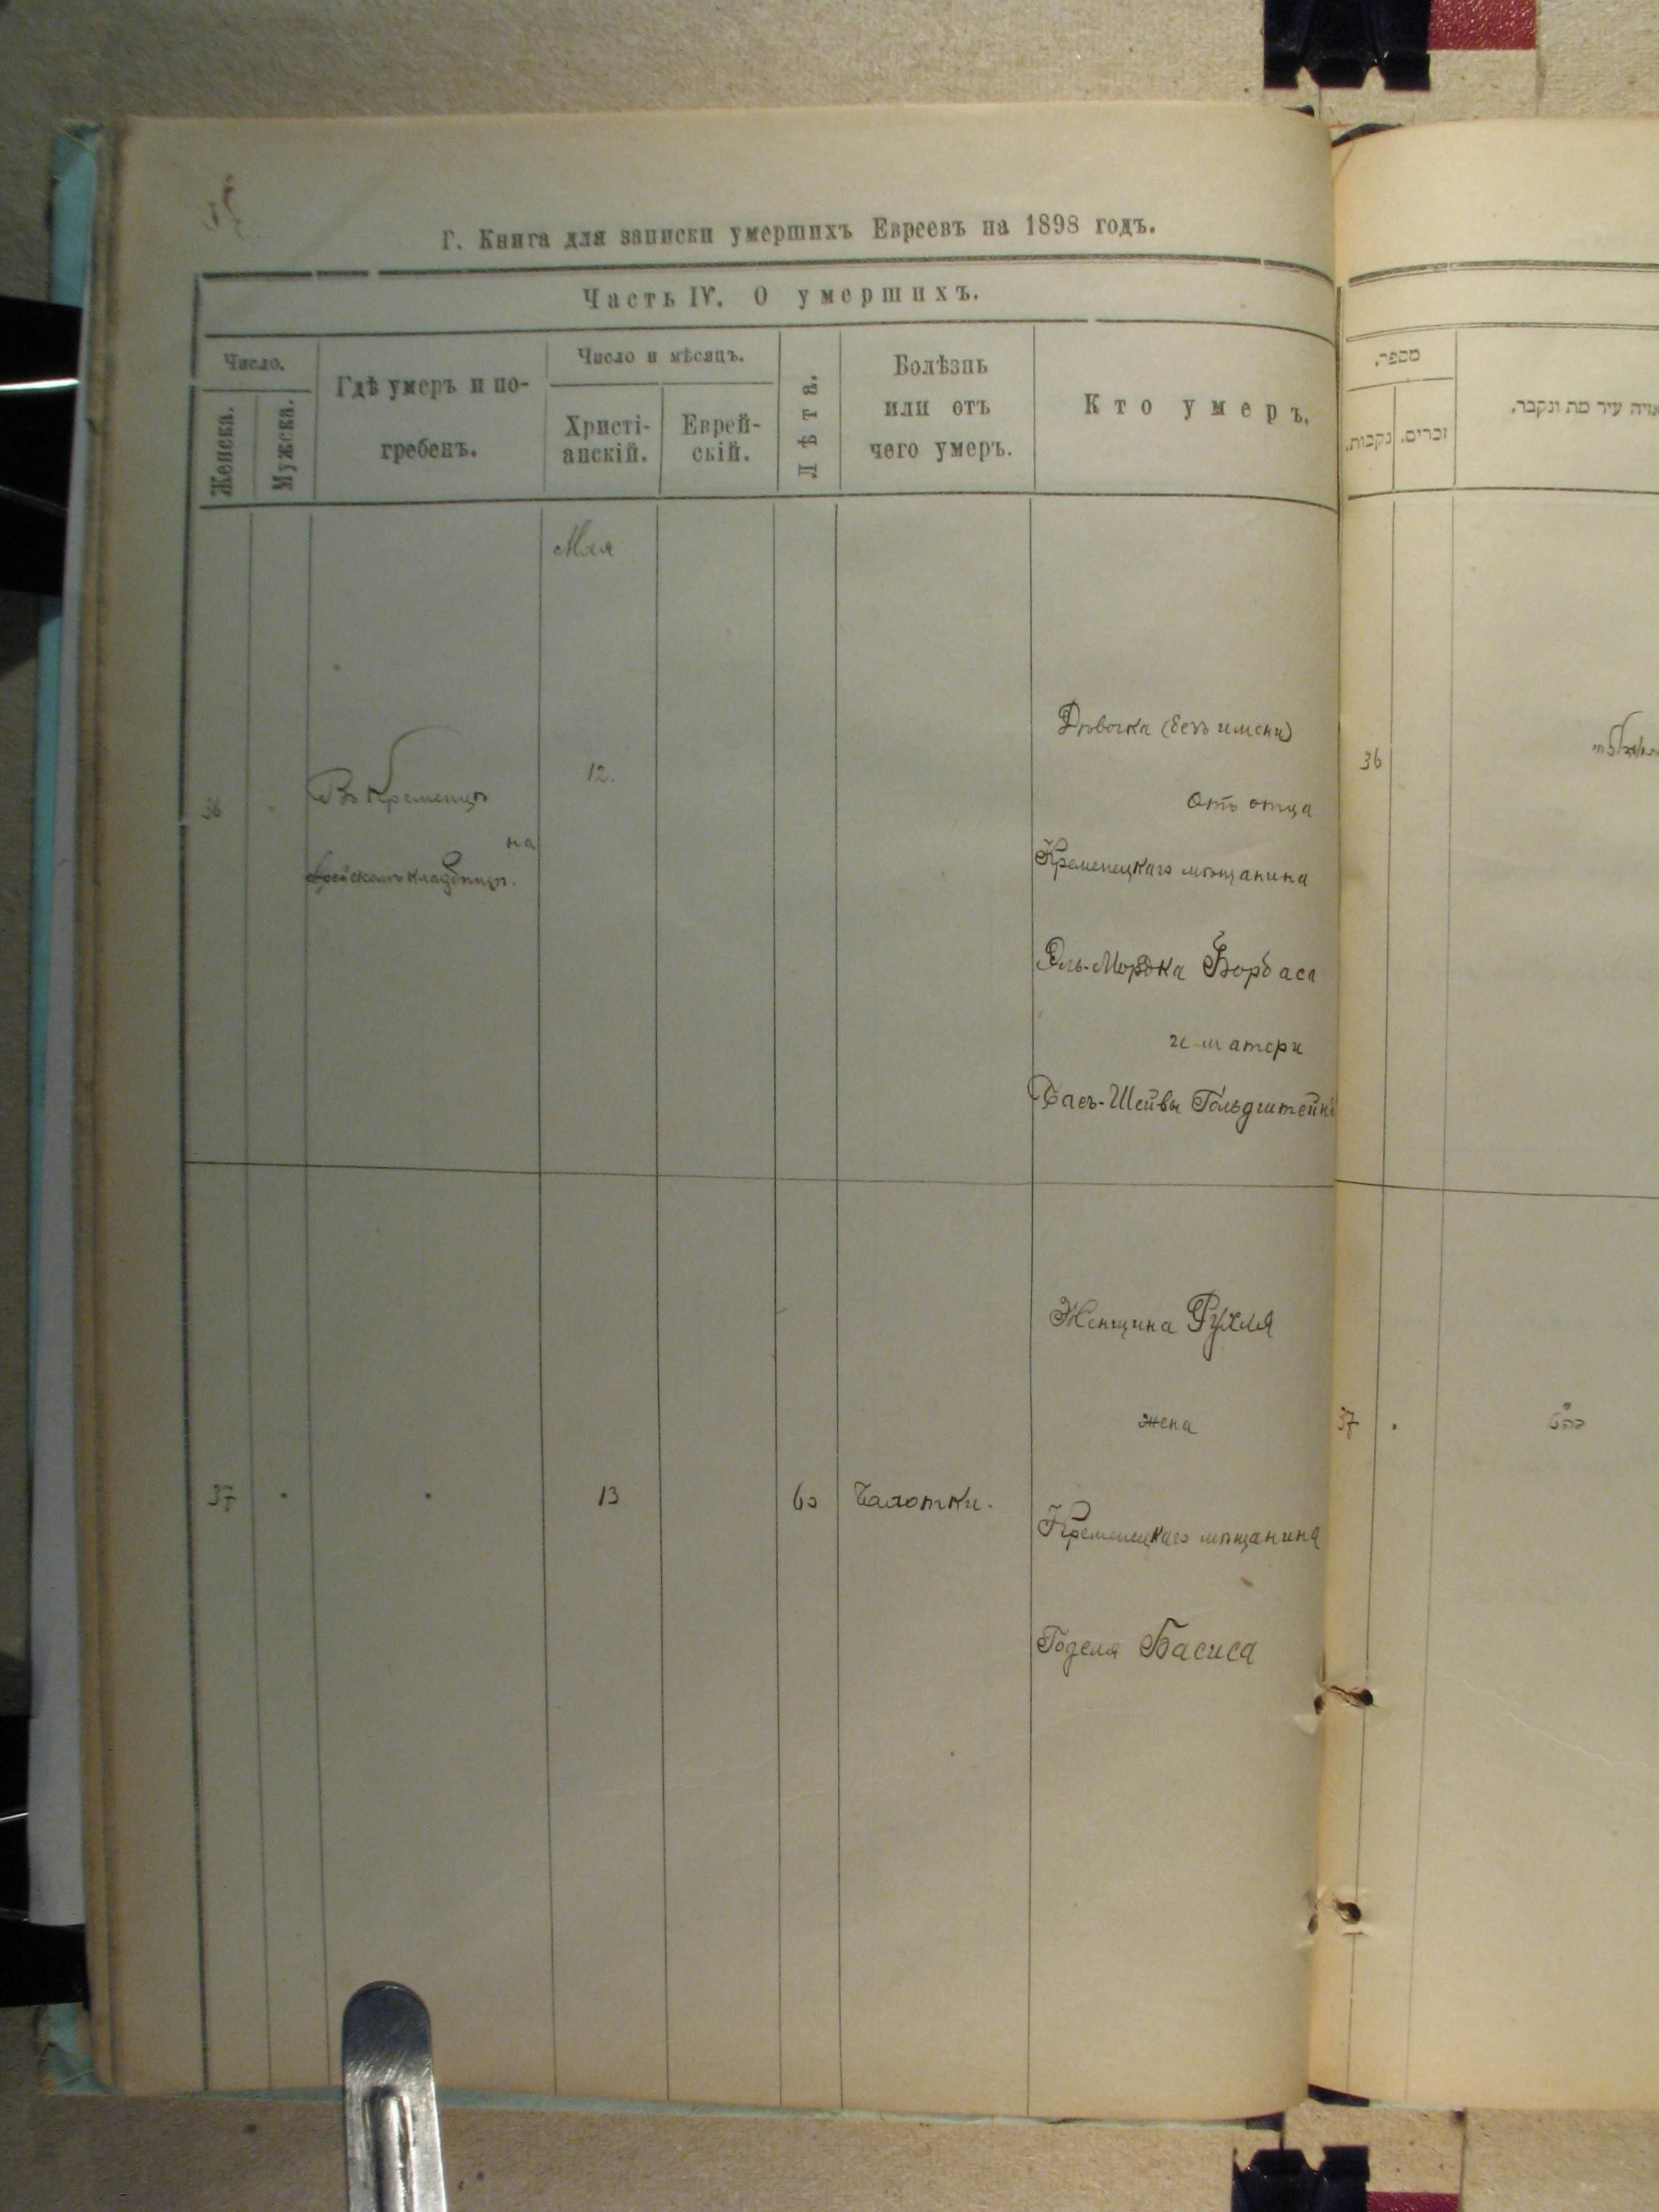 Г. Книга для записки умершихъ Евреевъ на 1898 годъ.
Часть IV. О умершихъ.
Число.
Женска.
Мужска.
Гдѣ умеръ и по-
гребенъ.
Число и мѣсяцъ.
Христі-
анскій.
Еврей-
скій.
Лѣта.
Болѣзнь
или отъ
чего умеръ.
Кто умеръ.
Мая
36
Въ Кременцѣ
на
еврейскомъ кладбищѣ.
12.
Дѣвочка (безъ имени)
отъ отца
Кременецкаго мѣщанина
Эль-Мордка Борбаса
и матери
Бась-Шейвы Гольдштейнъ
37
13
60
Чахотки.
Женщина Рухля
жена
Кременецкаго мѣщанина
Годеля Басиса
מספר.
נקבות.
זכרים.
עיר מת ונקבר.
36
37